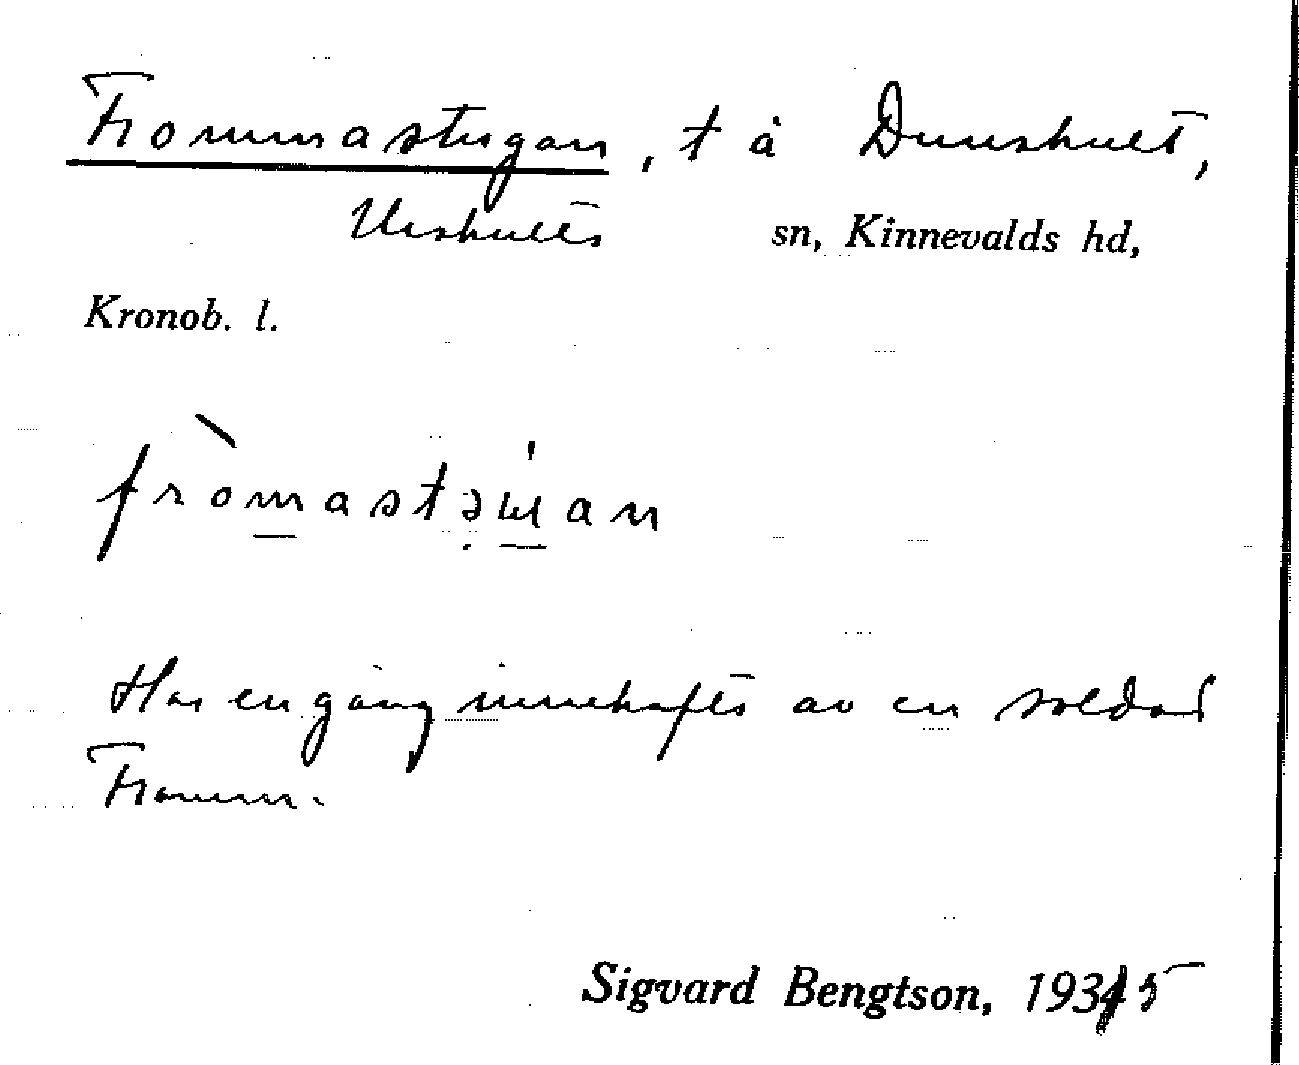 Frommastugan, t å Dunshult,
Urshults sn, Kinnevalds hd,
Kronob. l.
Har en gång innehafts av en soldat
Fromm.
Sigvard Bengtson, 1935